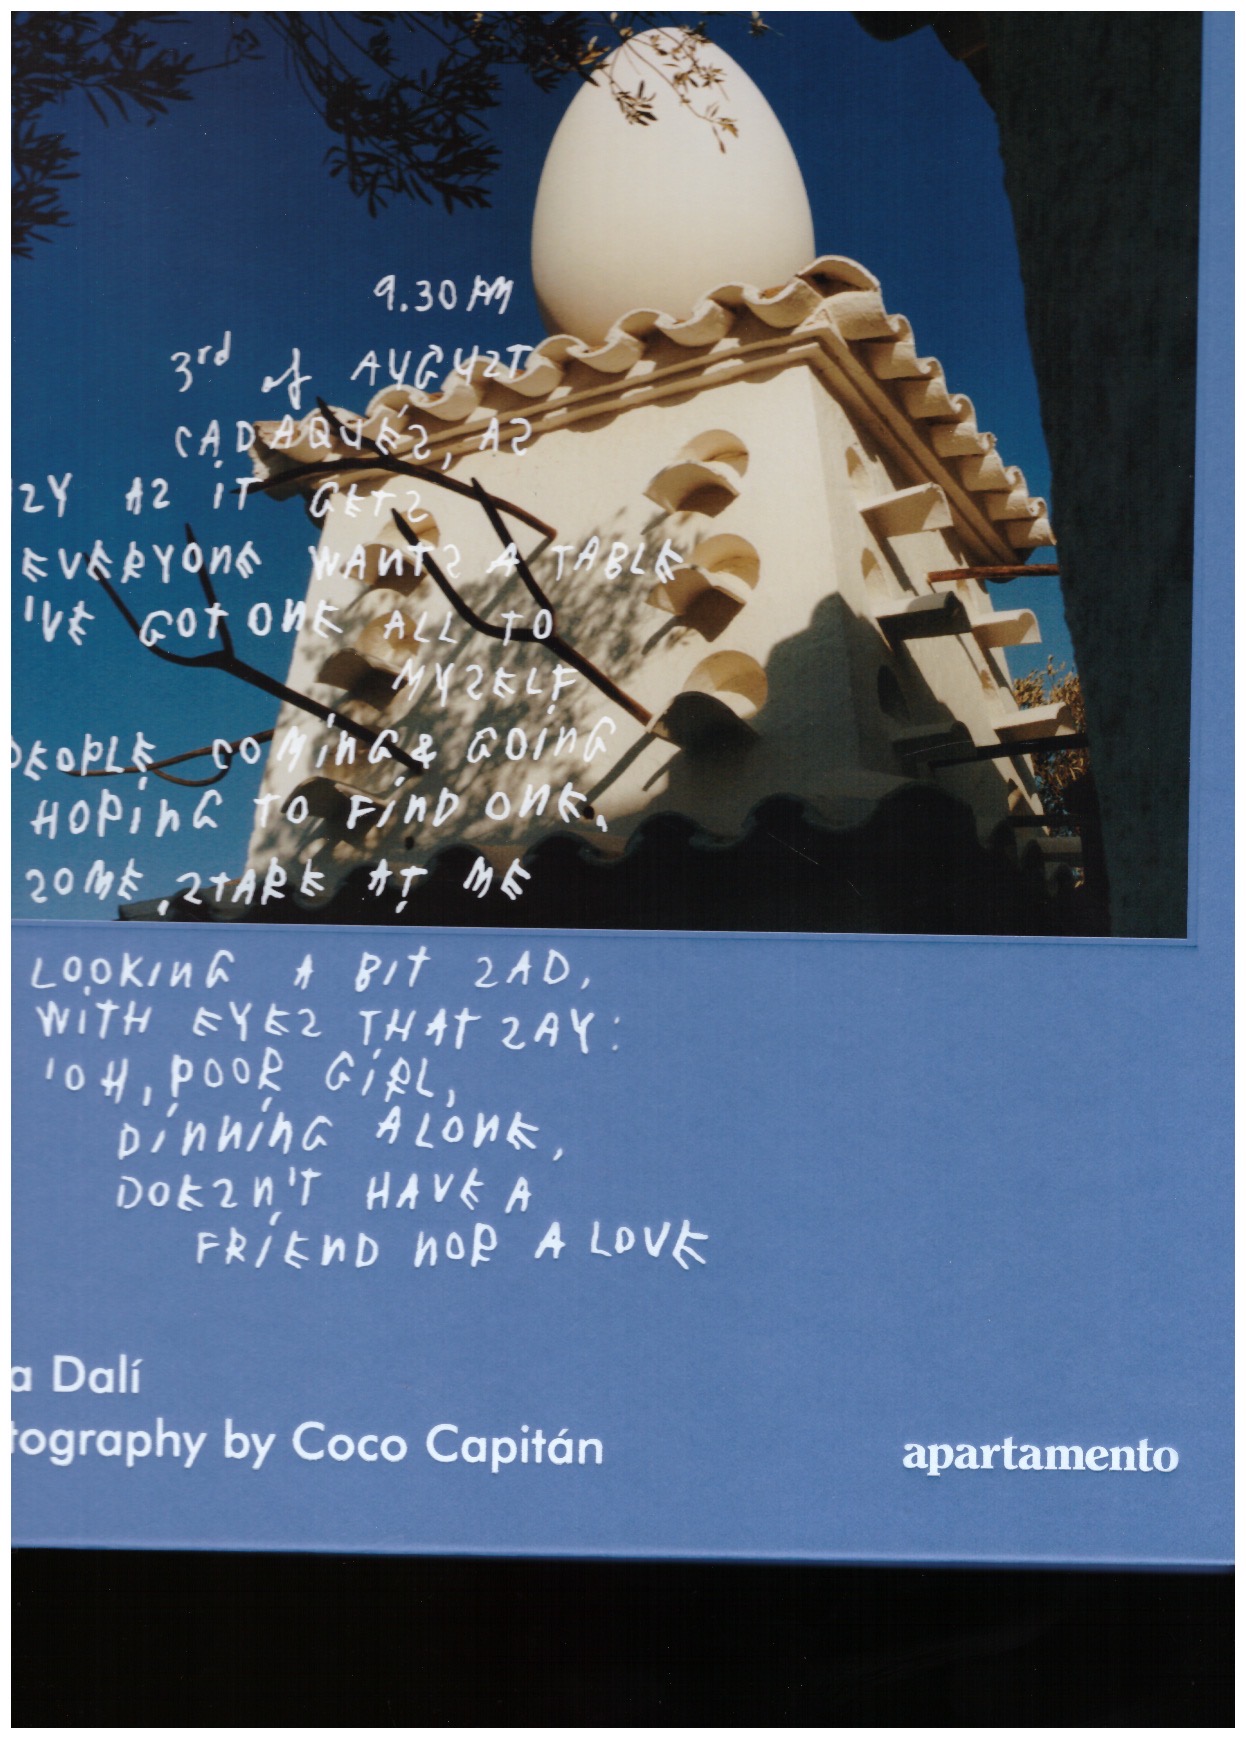 9.30 PM
3rd of AUGUST
CADAQUÉS, AS
ZY AS IT GETS
EVERYONE WANTS A TABLE
'VE GOT ONE ALL TO
MYSELF
PEOPLE COMING & GOING
HOPING TO FIND ONE.
SOME, STARE AT ME
LOOKING A BIT SAD,
WITH EYES THAT SAY:
'OH, POOR GIRL,
DINNING ALONE,
DOESN'T HAVE A
FRIEND NOR A LOVE
a Dalí
tography by Coco Capitán
apartamento